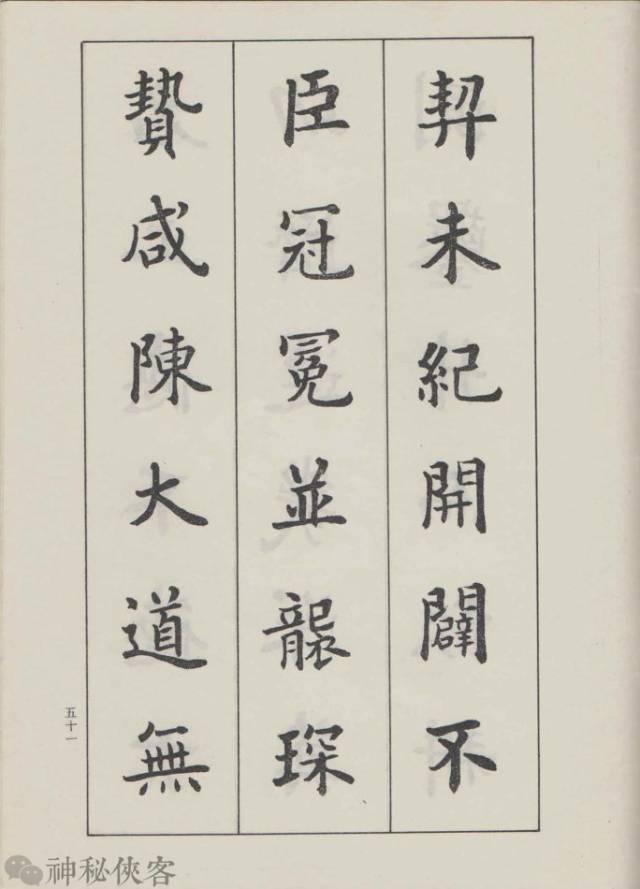 契未紀開闢不
臣冠冕並襲琛
贄咸陳大道無
五十一
神秘俠客